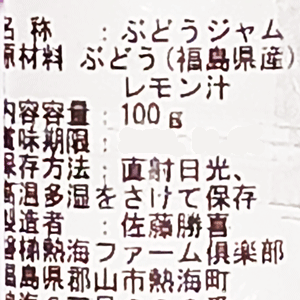 名称 : ぶどうジャム
原材料 ぶどう(福島県産)
レモン汁
内容容量 : 100g
賞味期限 :
保存方法 : 直射日光、
高温多湿をさけて保存
製造者 : 佐藤勝喜
磐梯熱海ファーム倶楽部
福島県郡山市熱海町